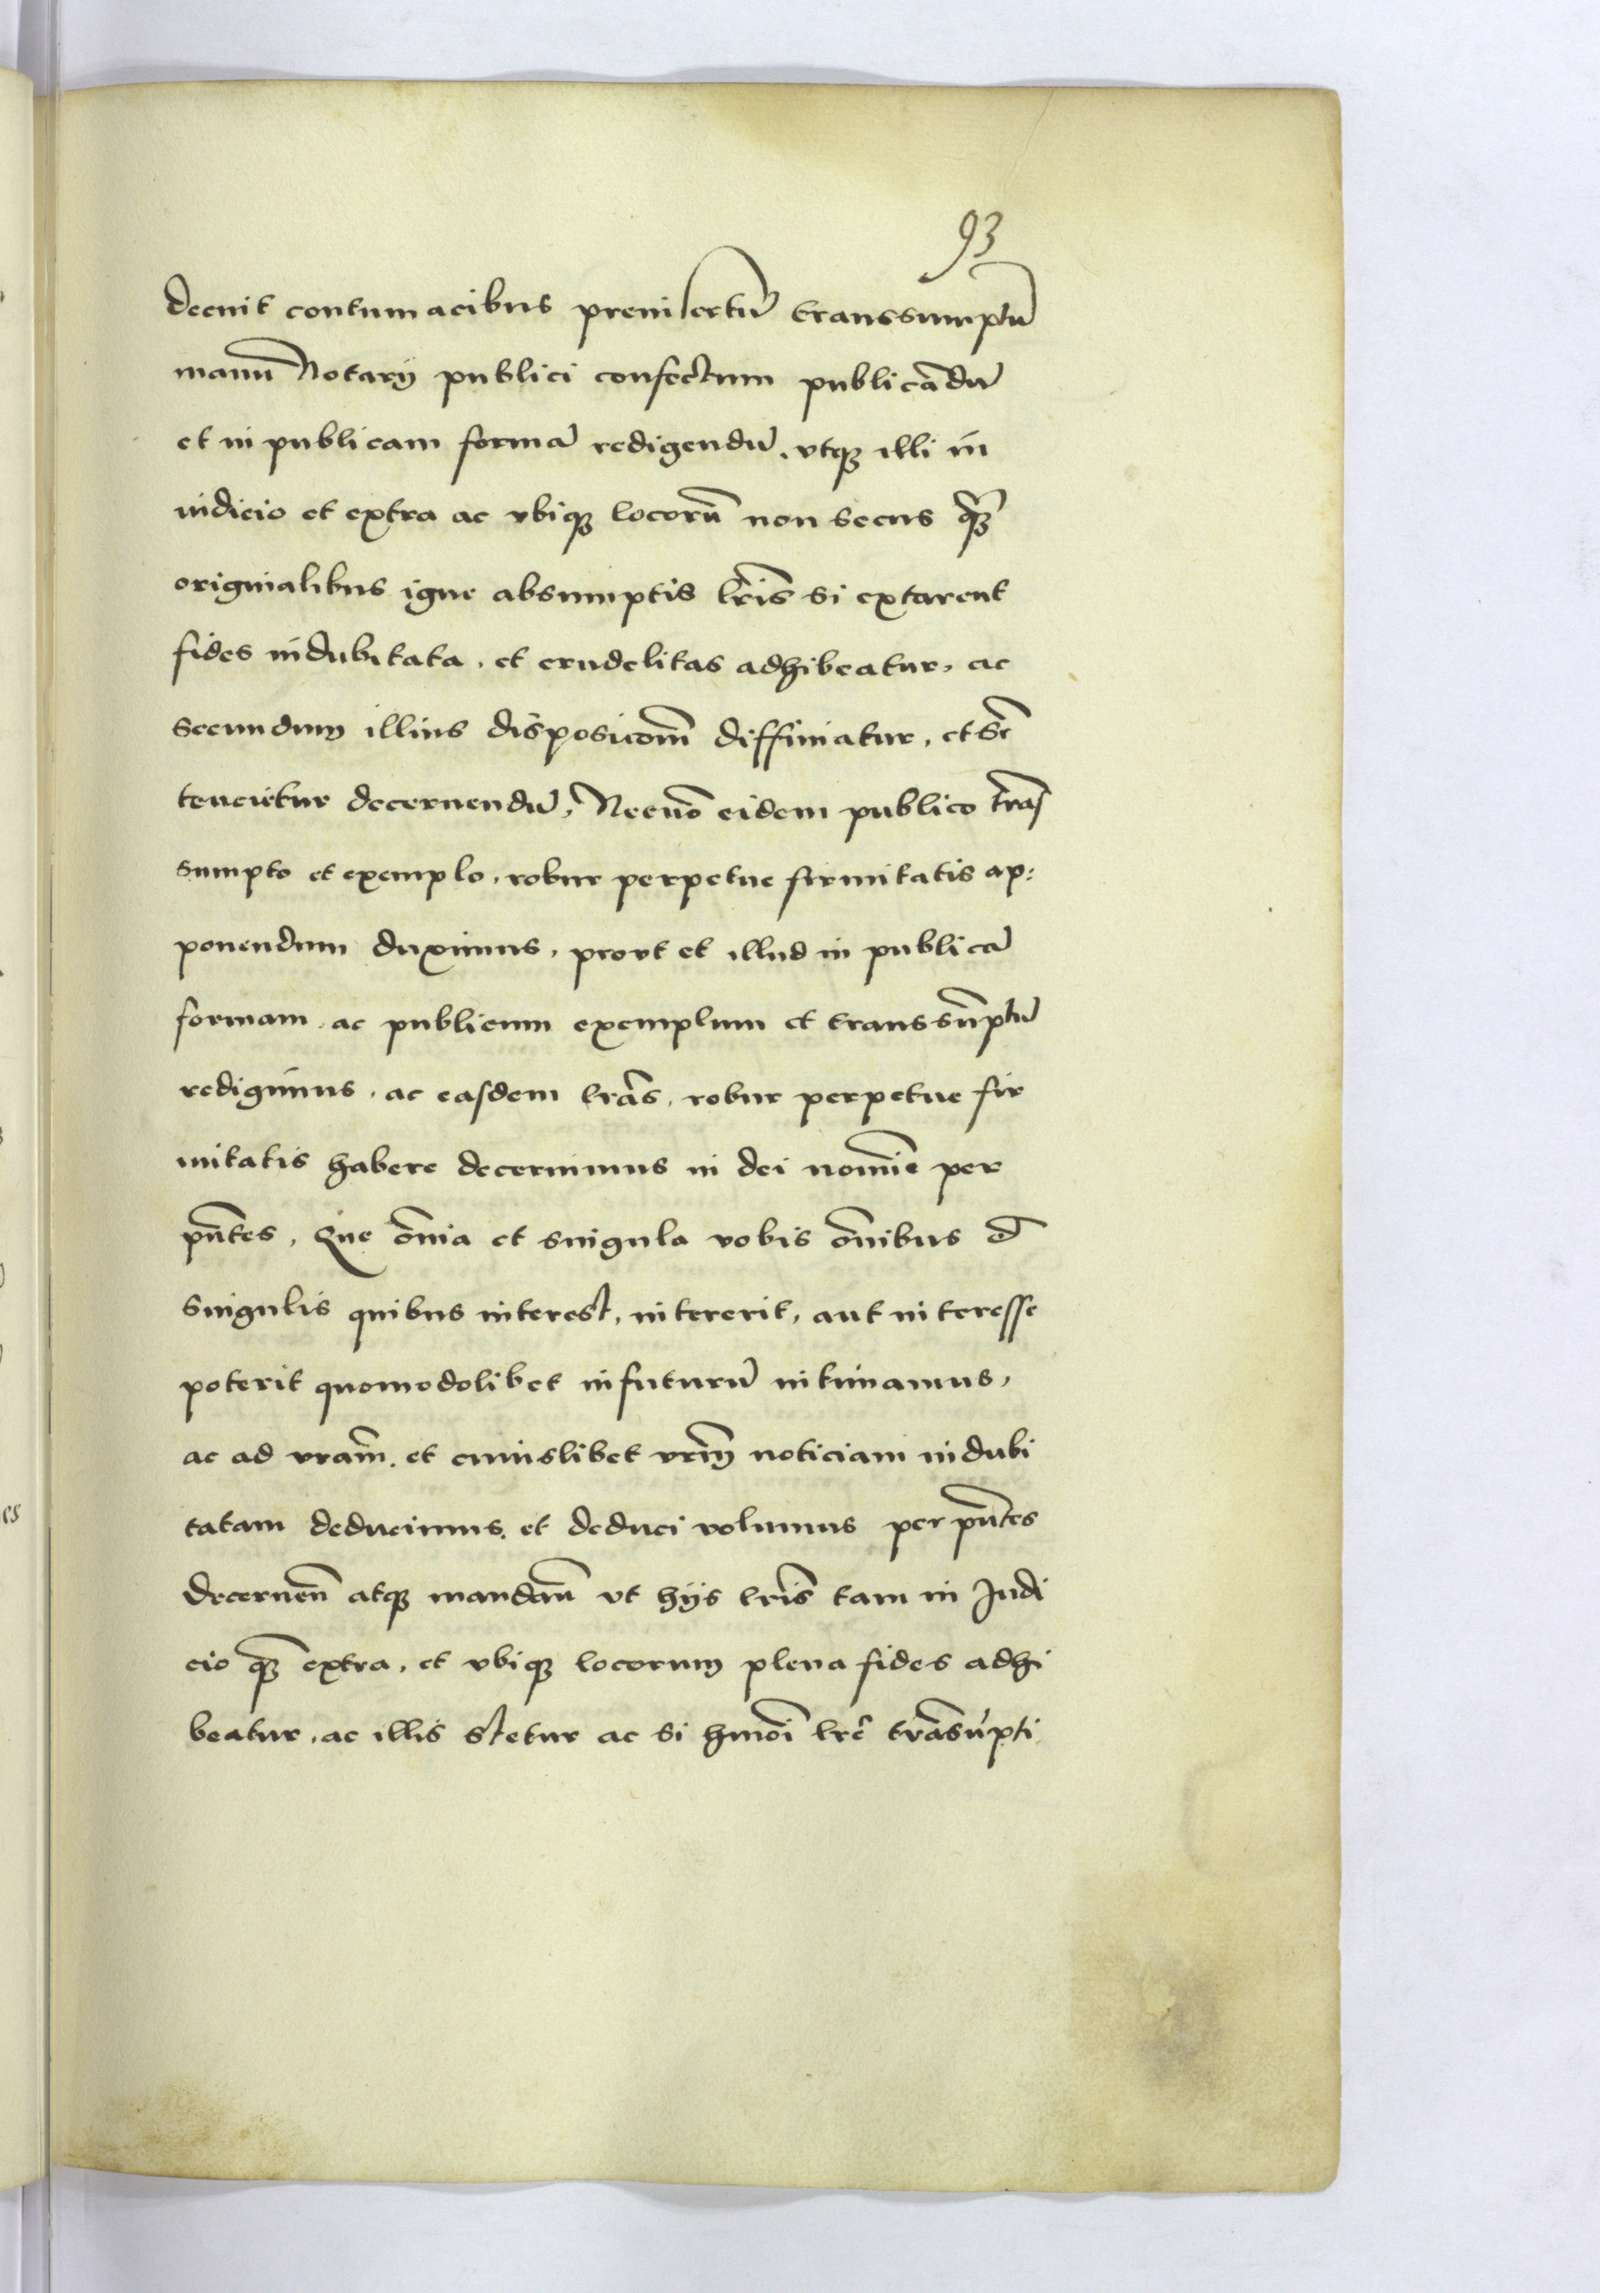 93
decuit contumacibus preinsertū transsumptū
manū Notarij publici confectum publicādū
et in publicam formā redigendū, vtqȝ illi in
iudicio et extra ac vbiqȝ locorū non secus qȝ̄
originalibus igne absumptis lr̄is si extarent
fides indubitata, et crudelitas adhibeatur, ac
secundum illius disposicōm̄ diffiniatur, et sē
tencietur decernendū, Necnō eidem publico trās
sumpto et exemplo, robur perpetue firmitatis ap:
ponendum duximus, provt et illud in publicā
formam, ac publicum exemplum et transsūptū
redigimus, ac easdem lrās, robur perpetue fir
mitatis habere decernimus in dei nomīe per
pn̄tes, Que ōnia et singula vobis ōnibus et
singulis quibus interest, intererit, aut interesse
poterit quomodolibet in futurū intimamus,
ac ad vrām, et cuiuslibet vrm̄ noticiam indubi
tatam deducimus, et deduci volumus per pn̄tes
decernen̄ atqȝ mandan̄ vt hijs lrīs tam in Judi
cio qȝ̄ extra, et vbiqȝ locorum plena fides adhi
beatur, ac illis stetur ac si hmōi lrē trāsūpti
es